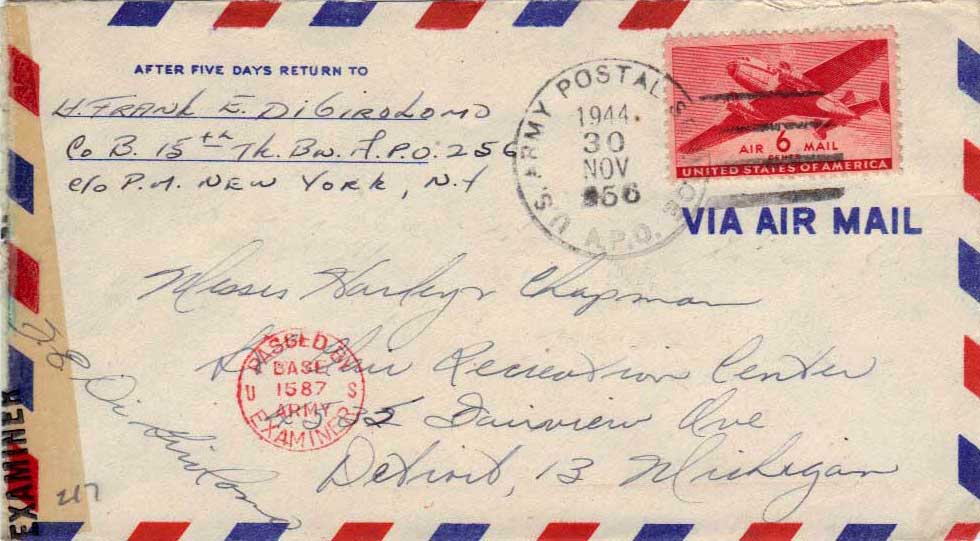 AFTER FIVE DAYS RETURN TO
Lt. FRANK E. DiGIROLOMO
Co B. 15th Tk. Bn. A.P.O. 256
c/o P.M. NEW YORK, N.Y
U.S. ARMY POSTAL SERVICE
1944
30
NOV
256
A.P.O.
AIR 6 MAIL
CENTS
UNITED STATES OF AMERICA
VIA AIR MAIL
Misses Harley & Chapman
Recreation Center
Fairview Ave
Detroit, 13 Michigan
PASSED BY
BASE
1587
U S
ARMY
EXAMINER
EXAMINER
217